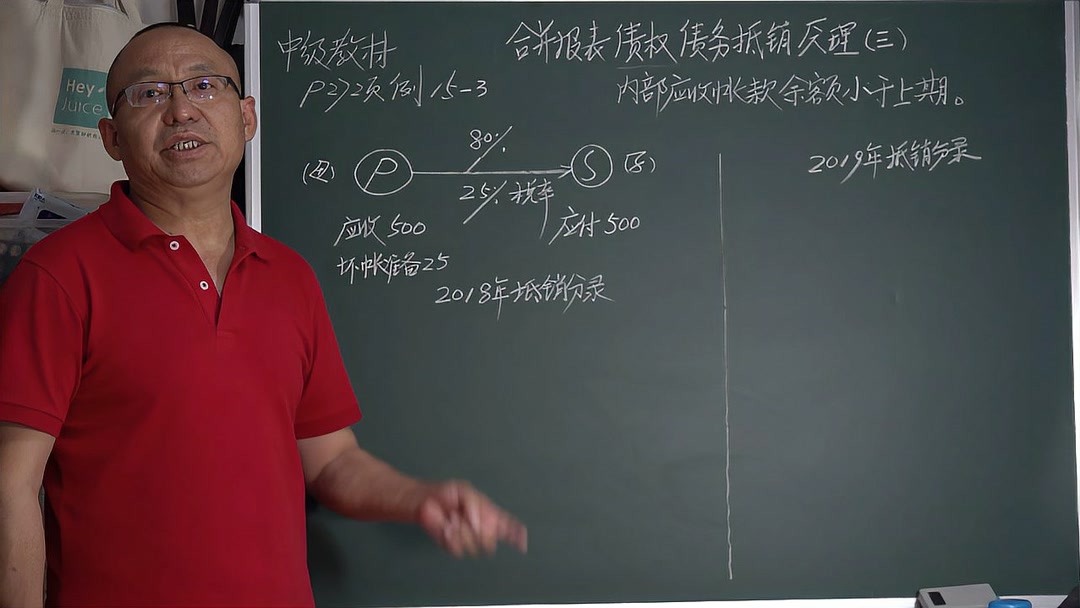 中级教材
P272页例15-3
合并报表债权债务抵销原理(三)
内部应收帐款余额小于上期。
Hey
Juice
(母) P 80% S (子)
25%税率
应收500
应付500
坏帐准备25
2018年抵销分录
2019年抵销分录